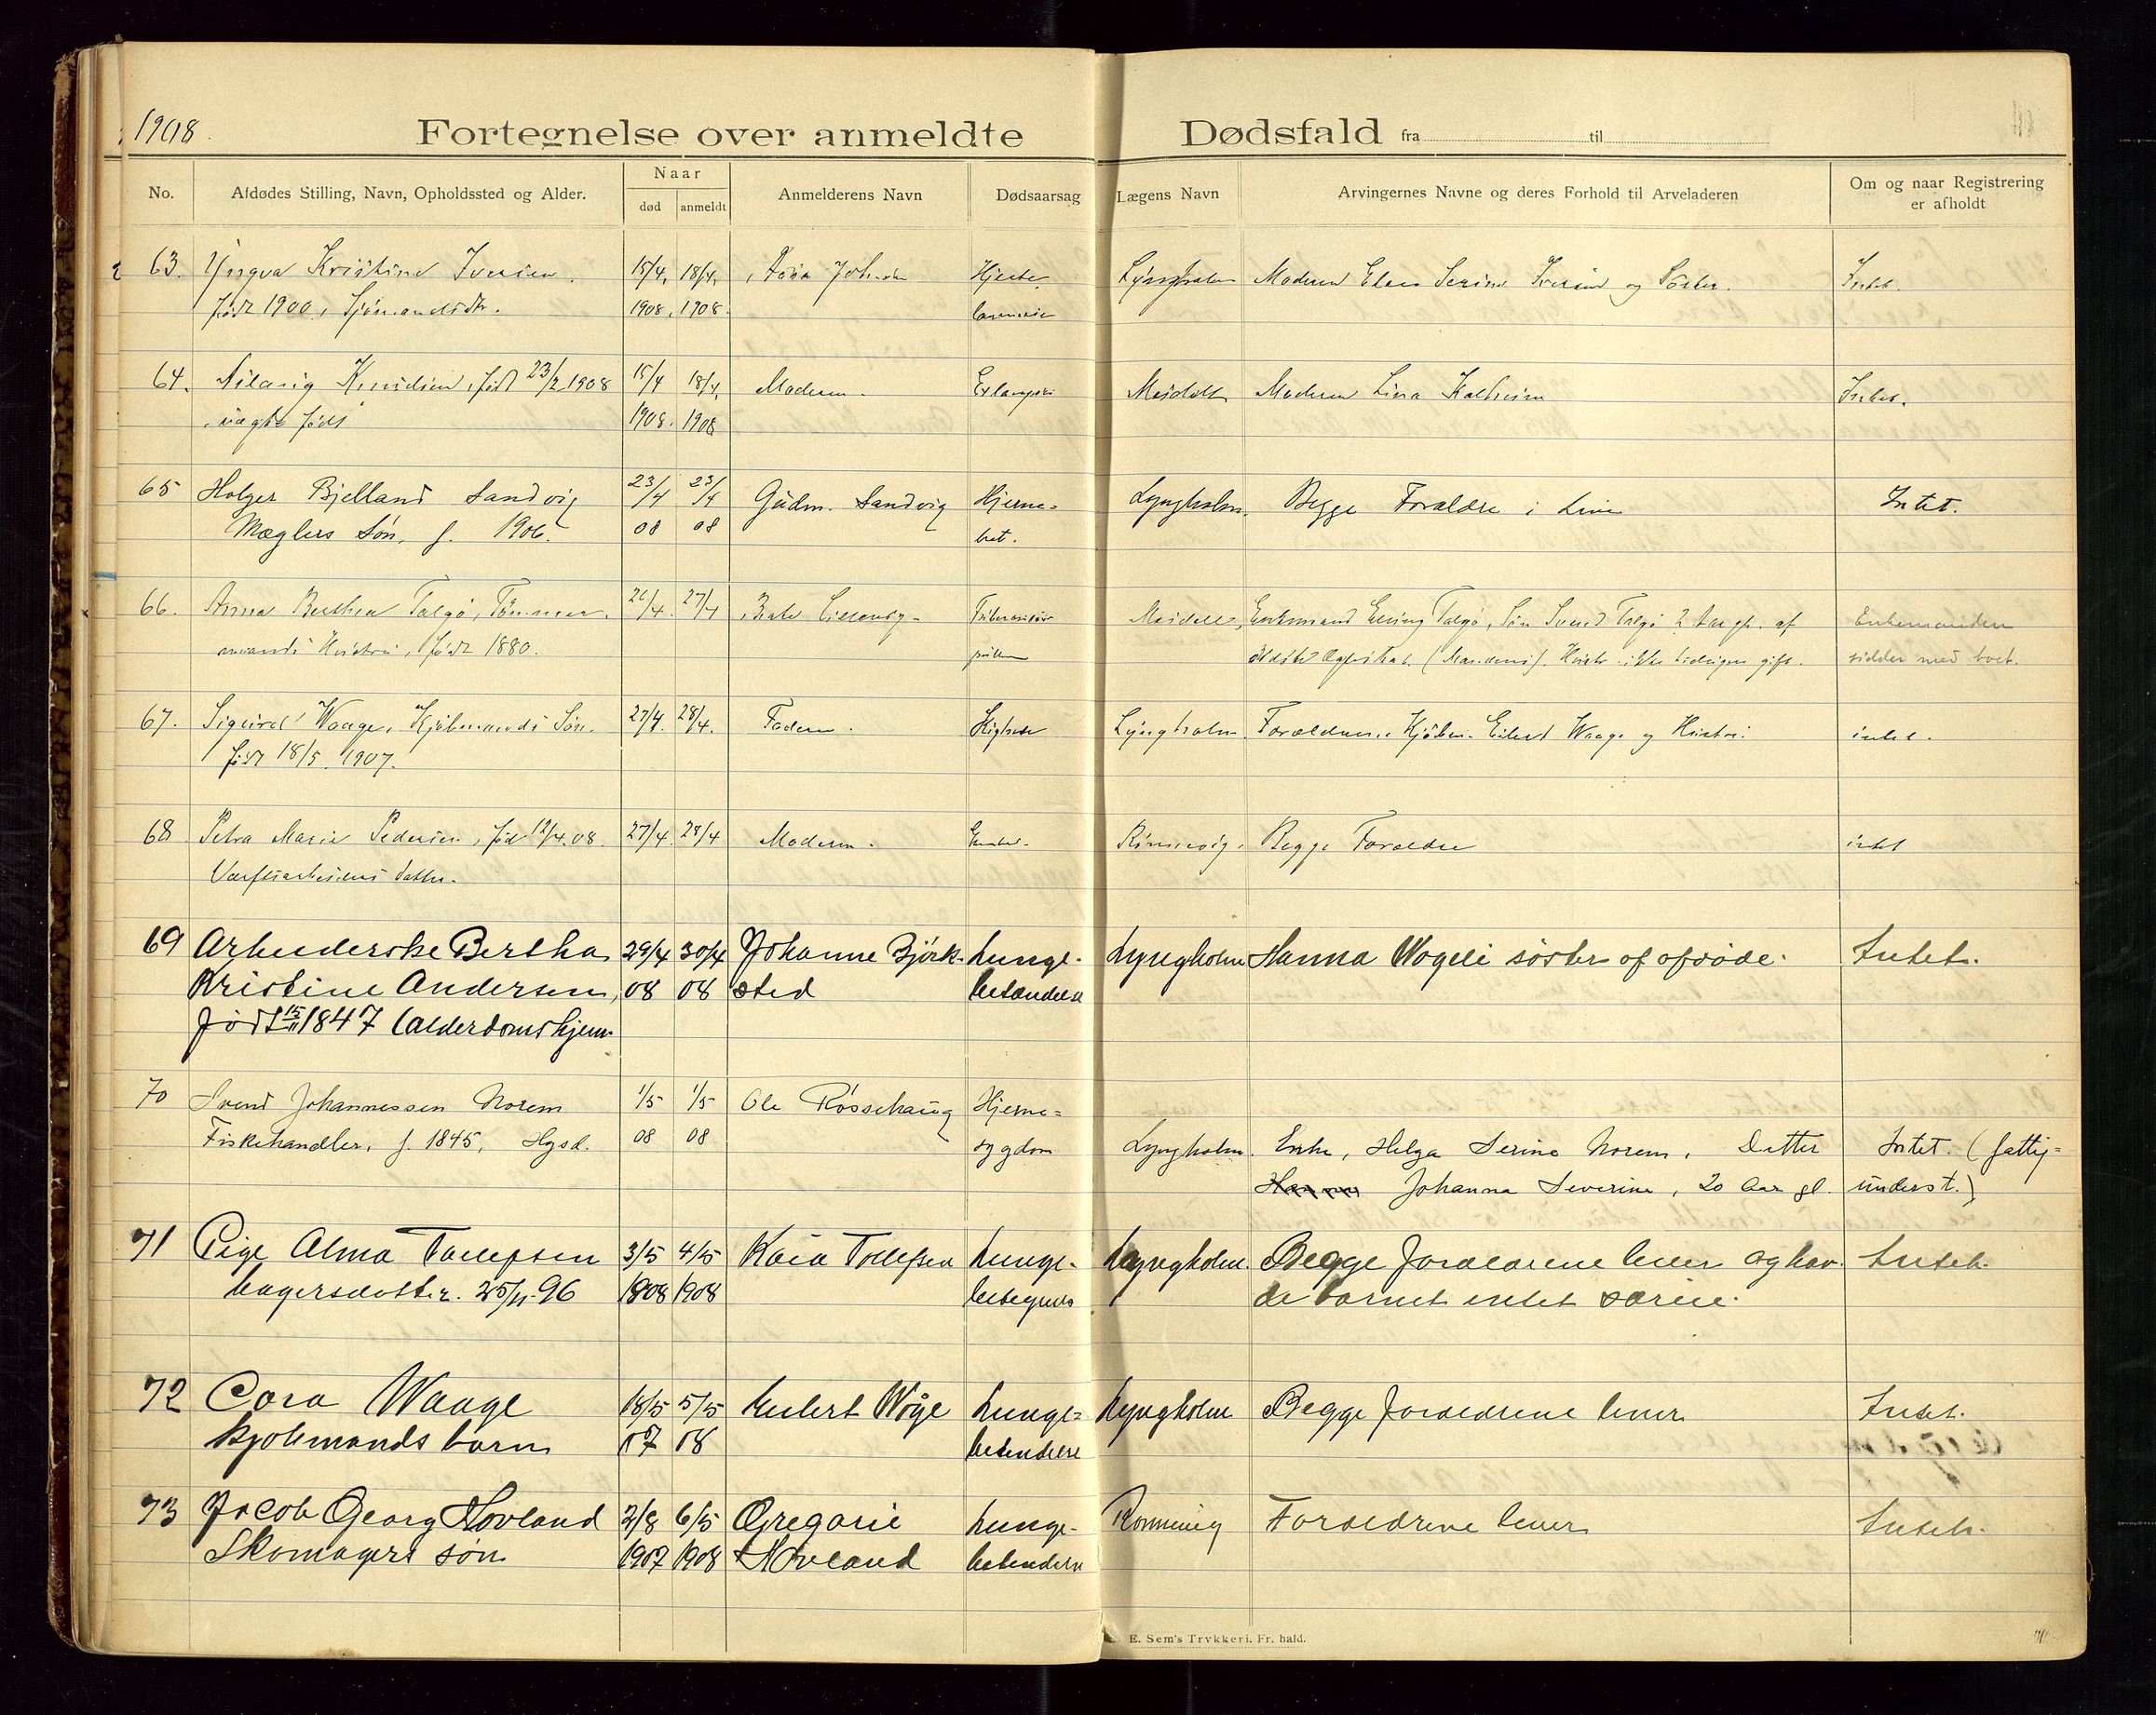 1908.
Fortegnelse over anmeldte Dødsfald fra til
No.
Afdødes Stilling, Navn, Opholdssted og Alder.
Naar
død
anmeldt
Anmelderens Navn
Dødsaarsag
Lægens Navn
Arvingernes Navne og deres Forhold til Arveladeren
Om og naar Registrering
er afholdt
63. Yngva Kristine Iversen. 15/4, 18/4, Hjerte Lyngholm Moderen Serine Iversen og Søster. Intet.
født 1900, Sjömandsdtr. 1908, 1908.
64. Knudsen, født 23/2 1908 15/4 18/4, Moderen. Eclampsi Moderen Lina Intet.
uægte født 1908. 1908
65 Holger Bjelland Sandvig 23/4 23/4 Gudm. Sandvig Hjerne= Lyngholm. Begge Forældre i Live Intet.
Mæglers Søn, f. 1906. 08 08 bet.
66. Anna Berthea Talgø, Tømmer- 26/4. 27/4 Enkemand Elling Talgø, Søn Svend Talgø 2 Aar gl. af Enkemanden
mands Hustru, født 1880. ikke tidligere gift. sidder med boet.
67. Sigurd Waage, Kjøbmands Søn. 27/4. 28/4. Faderen. Lyngholm Forældrene Kjøbm. Eilert Waage og Hustru. intet.
født 18/5. 1907.
68 Petra Marie Pedersen, født 12/4.08. 27/4. 28/4 Moderen. Rönnevig. Begge Forældre intet
Værftsarbeiders Datter.
69 Arbeiderske Bertha 29/4 30/4 Johanne Björk- Lunge- Lyngholm Hanna Vogeli søster af afdøde. Intet.
Kristine Andersen, 08 08 sted betændelse
født 15/11 1847 (Alderdomshjem.
70 Svend Johannessen Norem 1/5 1/5 Ole Røssehaug Hjerne=
Fiskehandler, f. 1845, Hgsd. 08 08 sygdom Lyngholm. Enke, Helga Serine Norem, Datter Intet. (fattig=
Johanna Severine, 20 Aar gl. underst.)
71 Pige Alma Tollefsen 3/5 4/5 Kaia Tollefsen Lunge- Lyngholm. Begge forældrene lever og hav- Intet.
bagersdatter. 25/11-96 1908 1908 de barnet intet særeie.
72 Cora Waage 18/5 5/5 Eilert Wåge Lunge= Lyngholm Begge forældrene lever Intet.
kjøbmands barn 07 08 betændelse
73 Jacob Georg Hovland 2/8 6/5 Gregorie Lunge- Rønnevig Forældrene lever Intet.
Skomagers søn 1907 1908 Hovland betændelse
E. Sem's Trykkeri, Fr. hald.